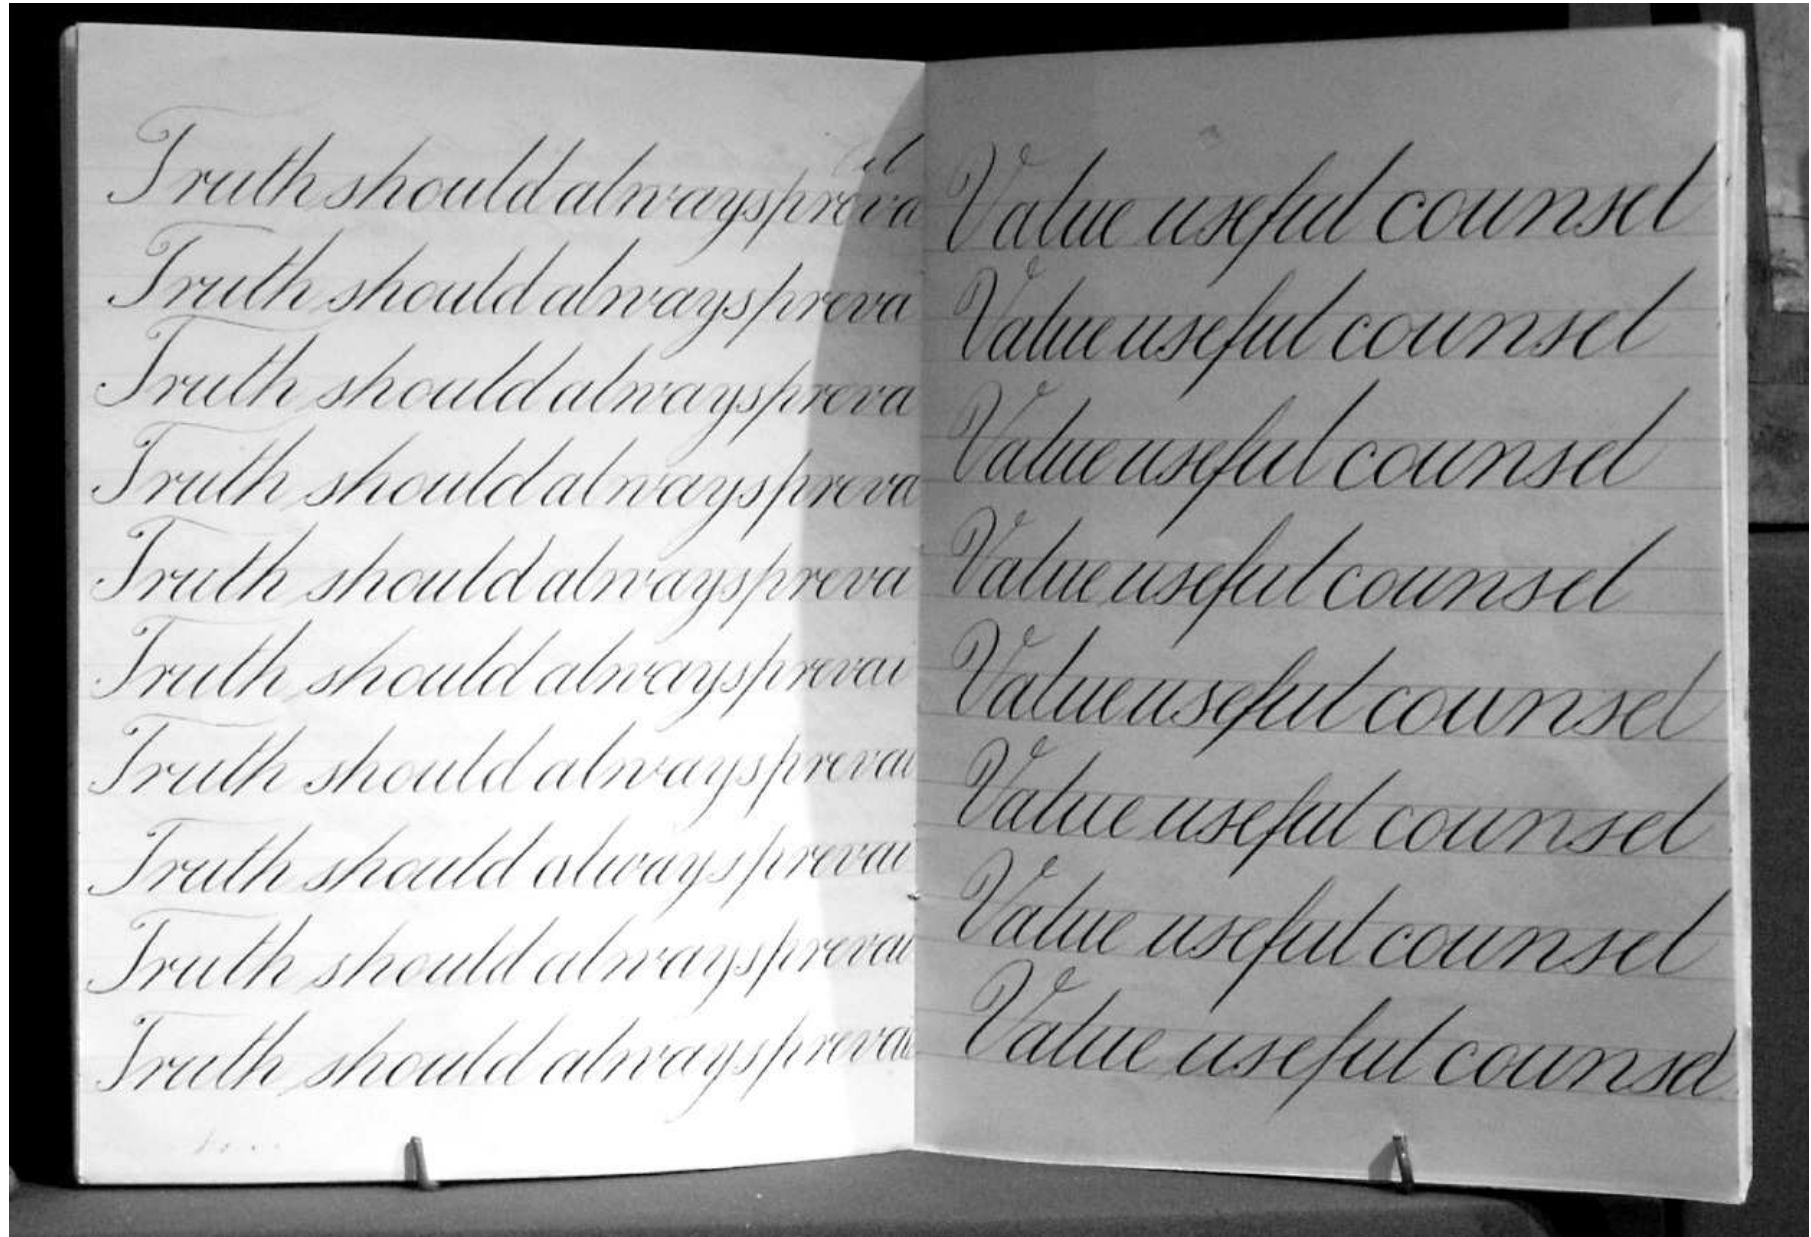 il
Truth should always preva
Truth should always preva
Truth should always preva
Truth should always preva
Truth should always preva
Truth should always prevai
Truth should always prevai
Truth should always prevai
Truth should always prevai
Truth should always prevai
Value useful counsel
Value useful counsel
Value useful counsel
Value useful counsel
Value useful counsel
Value useful counsel
Value useful counsel
Value useful counsel